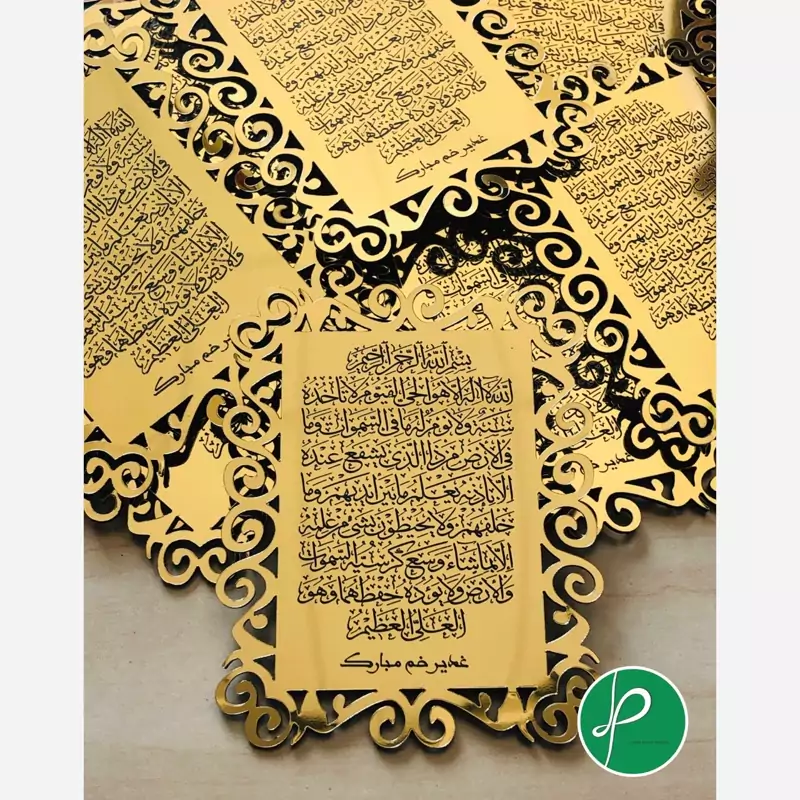 بسم الله الرحمن الرحيم
الله لا اله الا هو الحي القيوم لا تأخذه
سنة ولا نوم له ما في السموات وما
في الارض من ذا الذي يشفع عنده
الا باذنه يعلم ما بين ايديهم وما
خلفهم ولا يحيطون بشيء من علمه
الا بما شاء وسع كرسيه السموات
والارض ولا يوده حفظهما وهو
العلي العظيم
غدیر خم مبارک